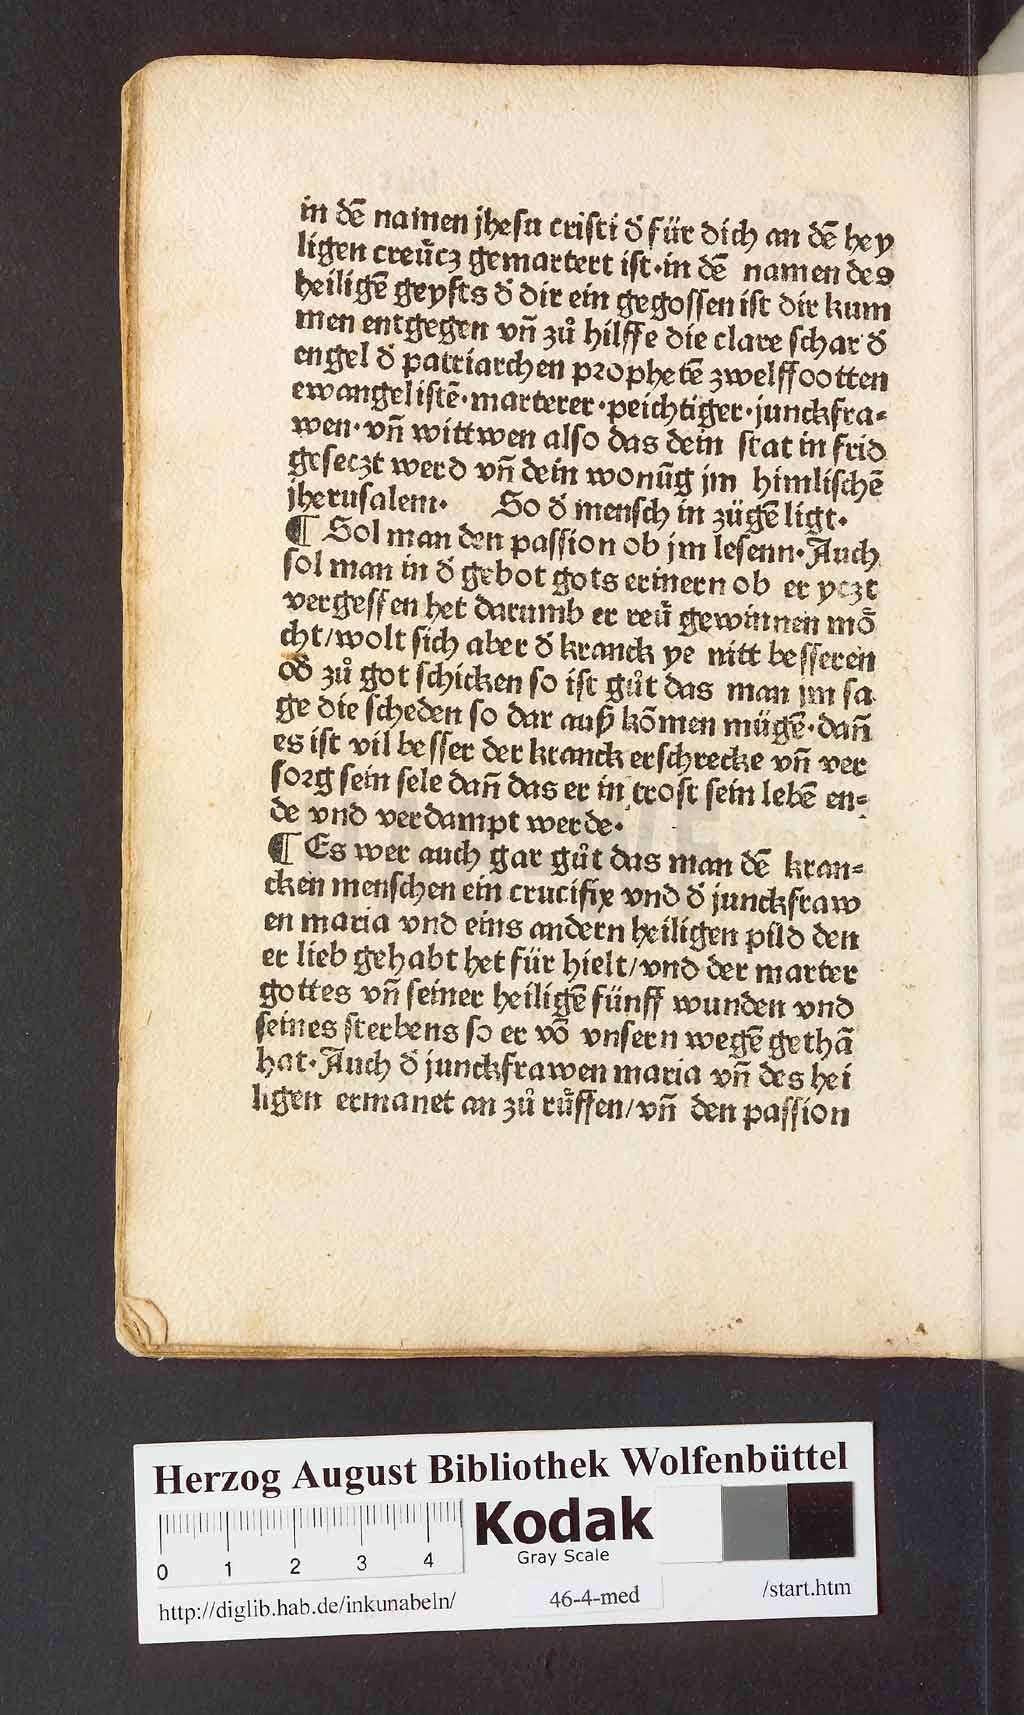 in dē namen jhesu cristi d̕ für dich an dē hey
ligen creücz gemartert ist·in dē namen des
heiligē geysts d̕ dir ein gegossen ist dir kum
men entgegen vn̄ zů hilffe die clare schar d̕
engel d̕ patriarchen prophetē zwelffbotten
ewangelistē·marterer·peichtiger·junckfra⸗
wen·vn̄ wittwen also das dein stat in frid
geseczt werd vn̄ dein wonūg jm himlischē
jherusalem· So d̕ mensch in zügē ligt·
¶ Sol man den passion ob jm lesenn·Auch
sol man in d̕ gebot gots erinern ob er yczt
vergessen het darumb er reü gewinnen mö
cht/wolt sich aber d̕ kranck ye nitt besseren
od̕ zů got schicken so ist gůt das man jm sa
ge die scheden so dar auß kōmen mügē·dan̄
es ist vil besser der kranck erschrecke vn̄ ver
sorg sein sele dan̄ das er in trost sein lebē en⸗
de vnd verdampt werde·
¶ Es wer auch gar gůt das man dē kran⸗
cken menschen ein crucifix vnd d̕ junckfraw
en maria vnd eins andern heiligen pild den
er lieb gehabt het für hielt/vnd der marter
gottes vn̄ seiner heiligē fünff wunden vnd
seines sterbens so er vō vnsern wegē gethā
hat·Auch d̕ junckfrawen maria vn̄ des hei
ligen ermanet an zů rüffen/vn̄ den passion
Herzog August Bibliothek Wolfenbüttel
Kodak
Gray Scale
0 1 2 3 4
http://diglib.hab.de/inkunabeln/ 46-4-med /start.htm